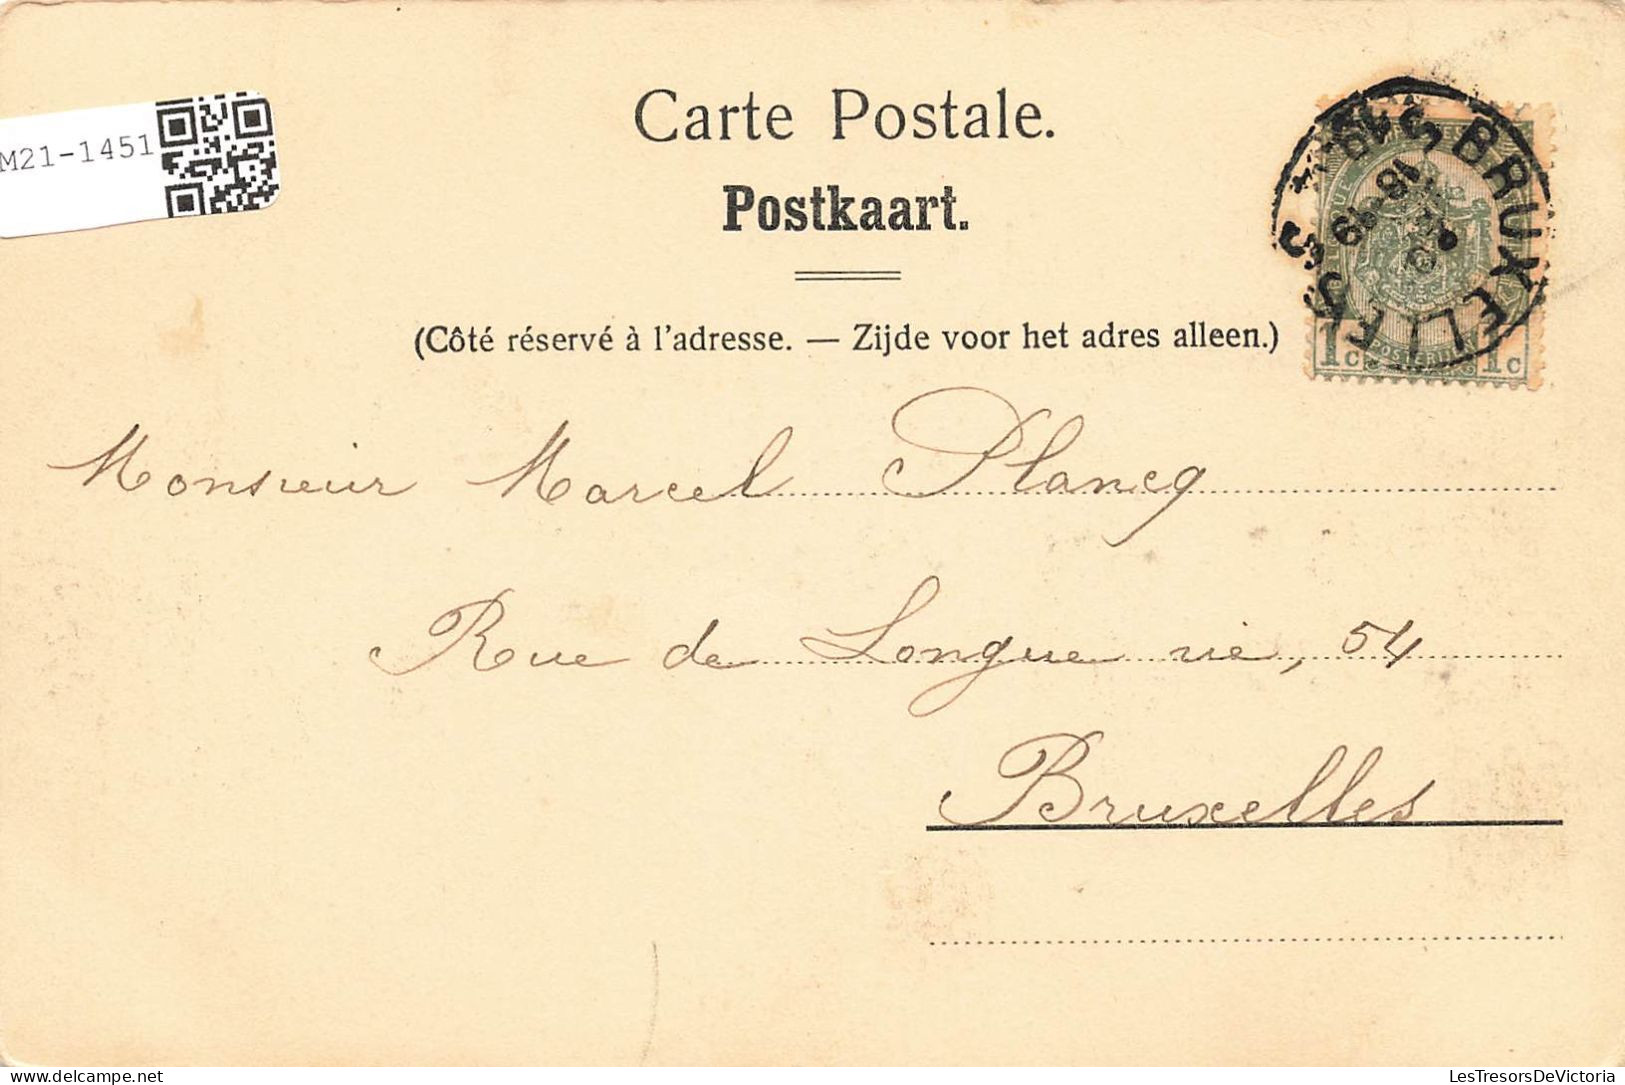 Carte Postale.
M21-1451
Postkaart.
BRUXELLES
18-19
(Côté réservé à l'adresse. — Zijde voor het adres alleen.)
1c POSTERIJEN 1c
Monsieur Marcel Plancq
Rue de Longue vie, 54
Bruxelles
LesTresorsDeVictoria